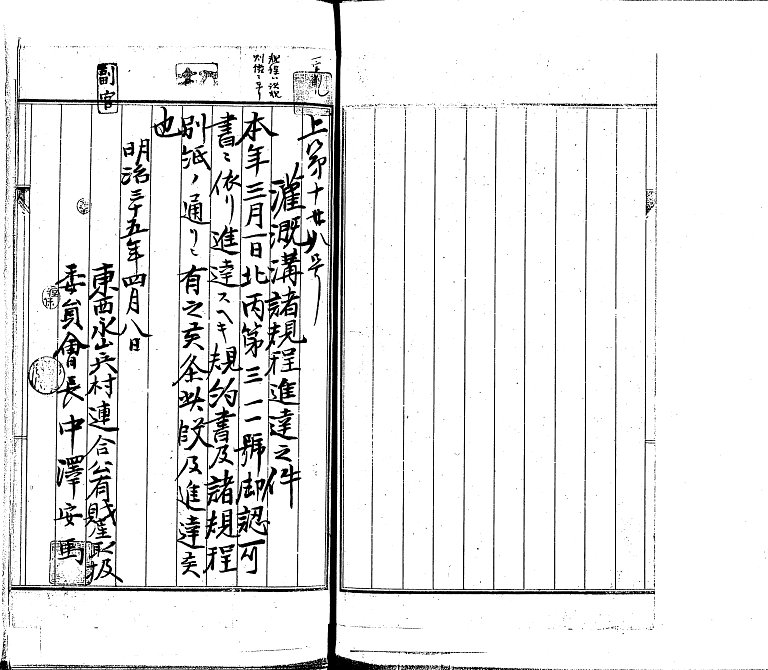 上第十廿八号
灌漑溝諸規程進達之件
本年三月一日北丙第三一一號御認可
書ニ依リ進達スヘキ規約書及諸規程
別紙ノ通リニ有之候条此段及進達候
也
明治三十五年四月八日
東西永山兵村連合公有財産取扱
委員會長中澤安馬
副官